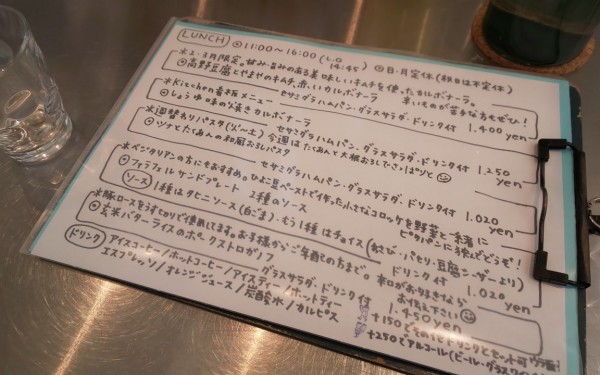 LUNCH ◎11:00〜16:00 (L.O 14:45) ◎日・月定休(祝日は不定休)
*2・3月限定。甘み・旨みのある美味しいキムチを使ったカルボナーラ。
◎高野豆腐とやませのキムチ赤いカルボナーラ 辛いものが苦手な方もぜひ!
セサミグラハムパン・グラスサラダ・ドリンク付 1.400 yen
*Kitchen看板メニュー
◎しょうゆ味の炙きカルボナーラ
セサミグラハムパン・グラスサラダ・ドリンク付 1.250 yen
*週替わりパスタ(火〜土) 今週はたくあんと大根おろしでさっぱりと
◎ツナとたくあんの和風おろしパスタ
セサミグラハムパン・グラスサラダ・ドリンク付 1.020 yen
*ベジタリアンの方にもおすすめ。ひよこ豆ペーストで作った小さなコロッケを野菜と一緒に
◎ファラフェルサンドプレート 2種のソース ピタパンに挟んでどうぞ!
ソース 1種はタヒニソース(白ごま)・もう1種はチョイス(わさび・パセリ・豆腐
ドリンク付 1.020 yen
*豚ロースをうす切りで使用してます。お子様からご年配の方まで。
◎玄米バターライスのポークストロガノフ
グラスサラダ・ドリンク付 1.450 yen
お伝え下さい
ドリンク アイスコーヒー/ホットコーヒー/アイスティー/ホットティー
エスプレッソ/オレンジジュース/炭酸水/カルピス
+150でその他ドリンクとセット可
+250でアルコール(ビール・グラスワ